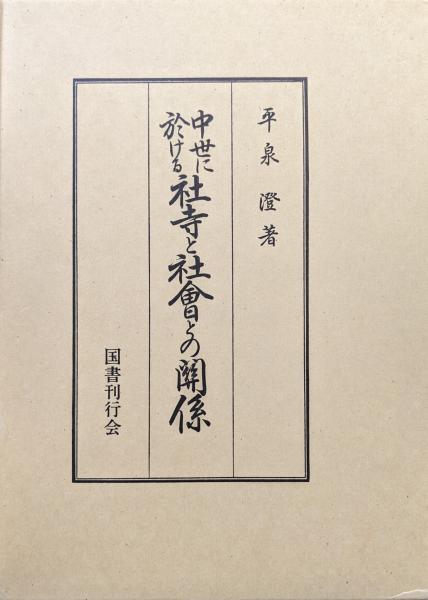 平泉 澄著
中世に於ける社寺と社會との關係
国書刊行会